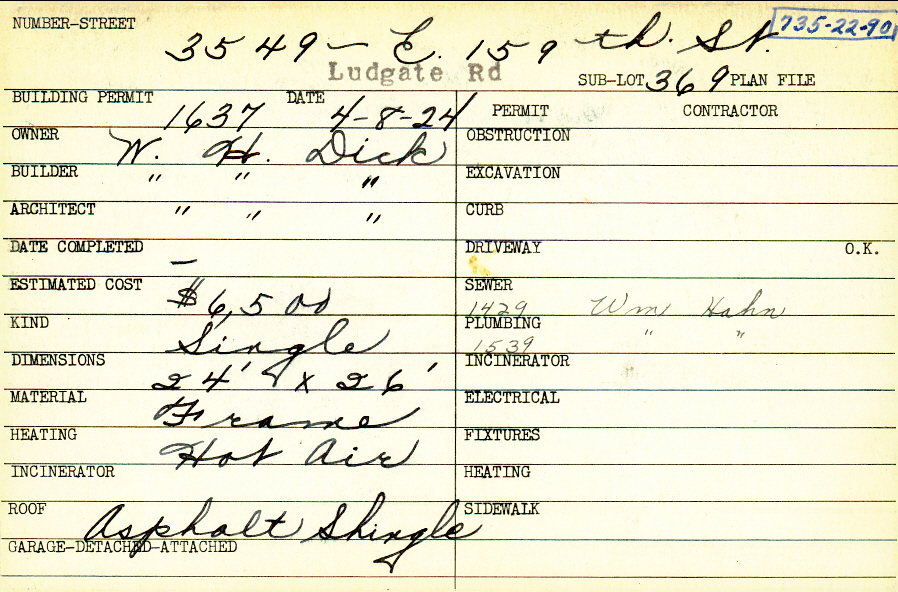 NUMBER-STREET 3549 - E. 159 th. St. 735-22-90
Ludgate Rd SUB-LOT 369 PLAN FILE
BUILDING PERMIT 1637 DATE 4-8-24 PERMIT CONTRACTOR
OWNER W. H. Dick OBSTRUCTION
BUILDER " " " EXCAVATION
ARCHITECT " " " CURB
DATE COMPLETED - DRIVEWAY O.K.
ESTIMATED COST $6,500 SEWER 1429 Wm Hahn
KIND Single PLUMBING 1539 " "
DIMENSIONS 24' x 26' INCINERATOR
MATERIAL Frame ELECTRICAL
HEATING Hot Air FIXTURES
INCINERATOR HEATING
ROOF Asphalt Shingle SIDEWALK
GARAGE-DETACHED-ATTACHED